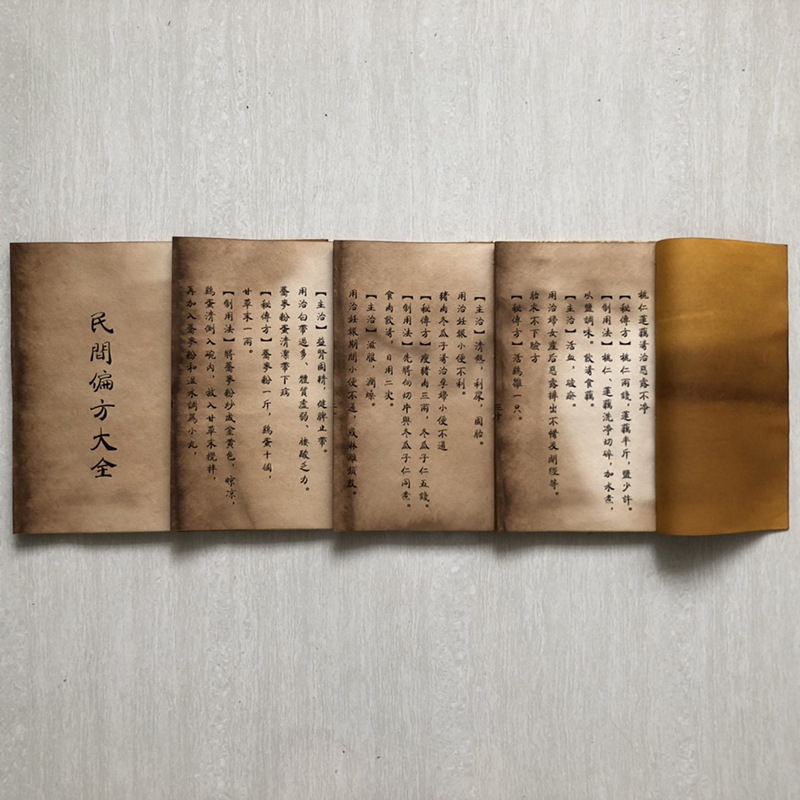 民間偏方大全
桃仁蓮藕湯治惡露不净
【秘傳方】桃仁兩錢，蓮藕半斤，鹽少許。
【制用法】桃仁、蓮藕洗净切碎，加水煮，
以鹽調味。飲湯食藕。
【主治】活血，破瘀。
用治婦女産后惡露排出不暢及閉經等。
胎衣不下驗方
【秘傳方】活鷄雛一只。
【主治】清熱，利尿，固胎。
用治妊娠小便不利。
豬肉冬瓜子湯治孕婦小便不通
【秘傳方】瘦豬肉三兩，冬瓜子仁五錢。
【制用法】先將肉切片與冬瓜子仁同煮。
食肉飲湯，日用二次。
【主治】滋服，潤燥。
用治妊娠期間小便不通，或淋瀝頻數。
【主治】益腎固精，健脾止帶。
用治白帶過多、體質虛弱、腰酸乏力。
蕎麥粉蛋清治帶下病
【秘傳方】蕎麥粉一斤，鷄蛋十個，
甘草末一兩。
【制用法】將蕎麥粉炒成金黄色，晾凉，
鷄蛋清倒入碗内，放入甘草末攪拌，
再加入蕎麥粉和温水調爲小丸，